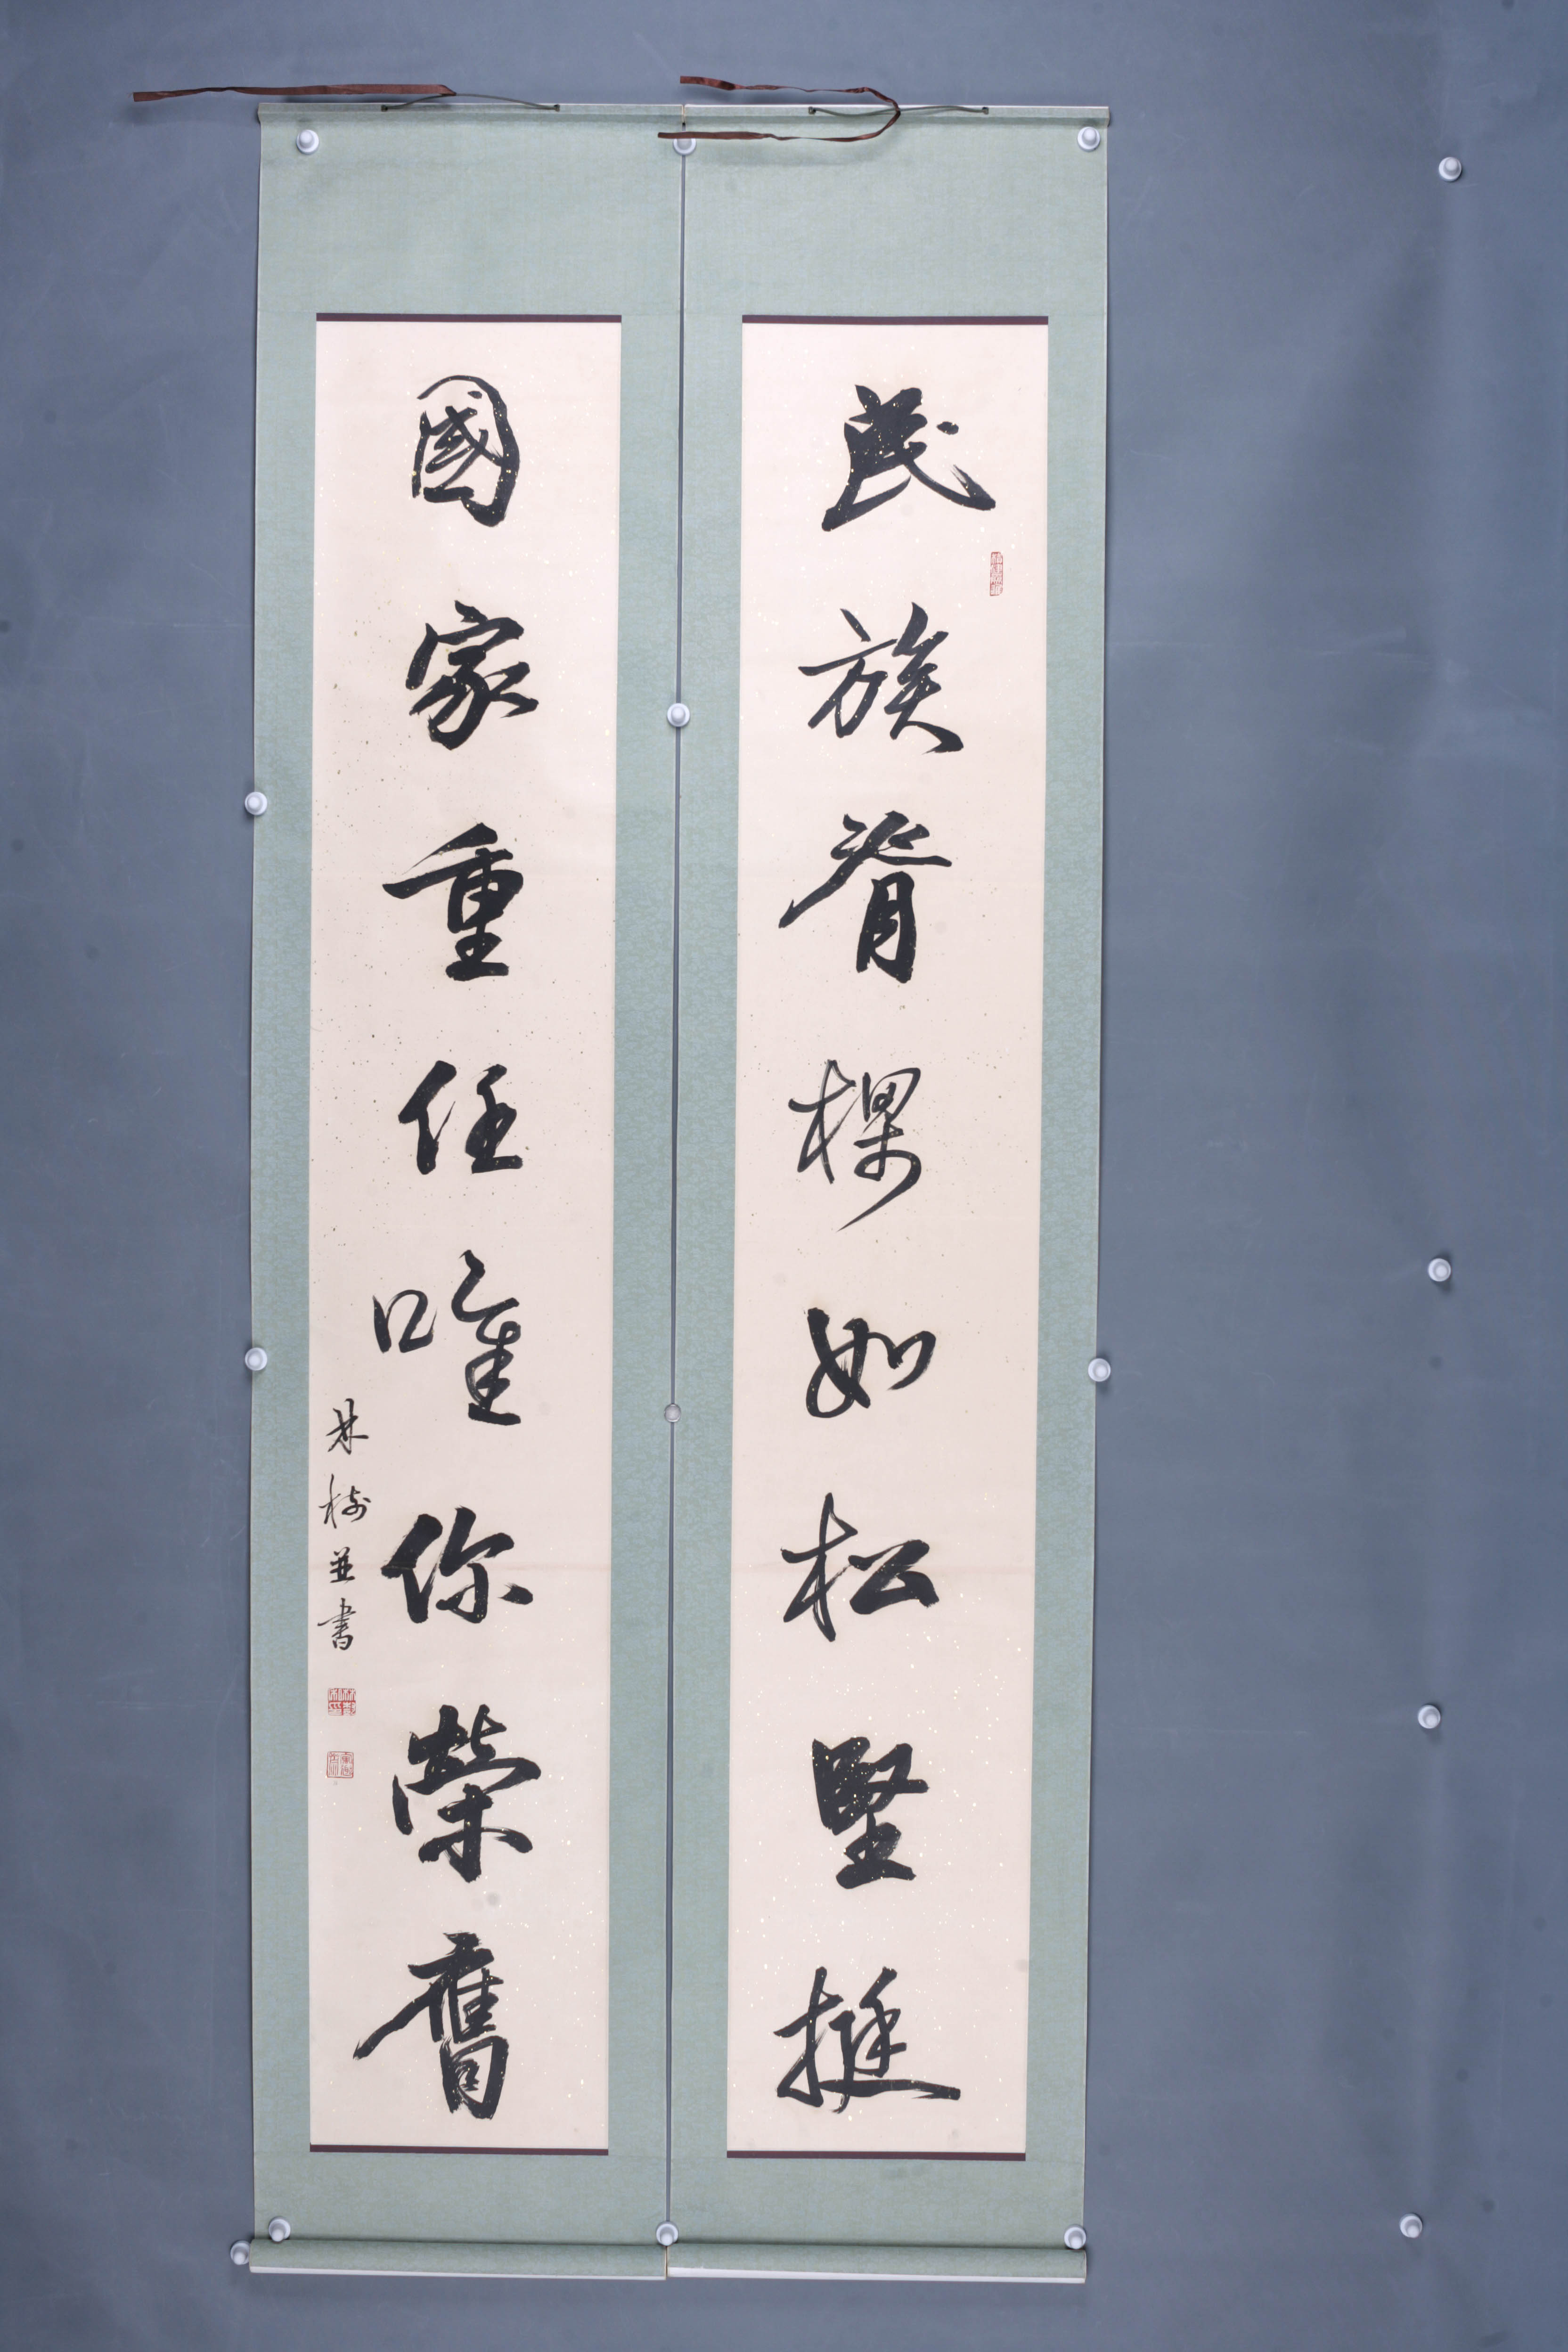 民族脊樑如松堅挺
國家重任唯你榮奮
林樹並書